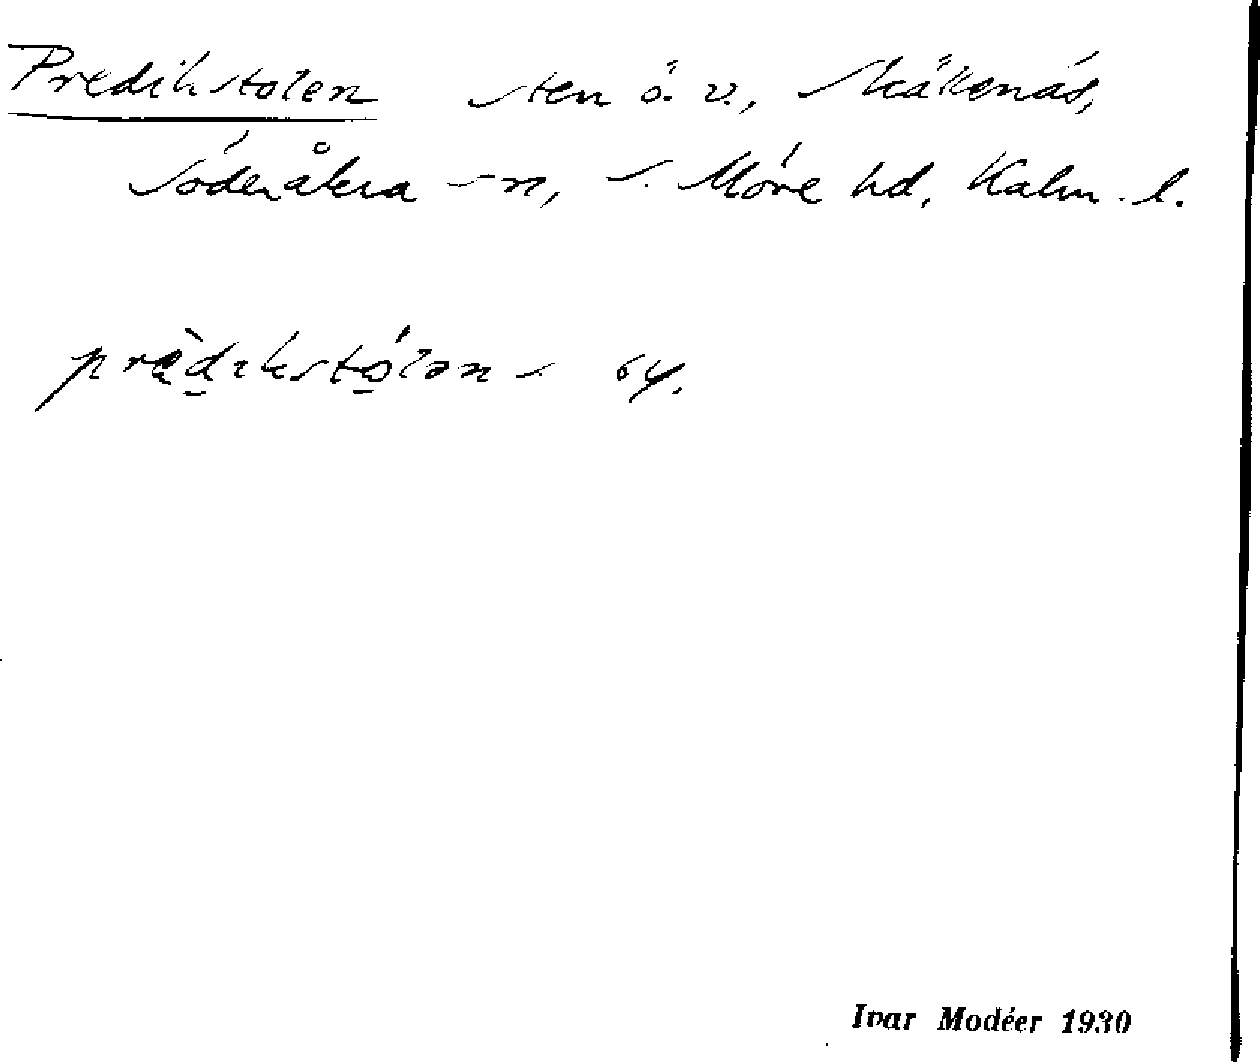 Predikstolen sten ö. v., Skäkenäs,
Söderåkra sn, S. Möre hd, Kalm. l.
64.
Ivar Modéer 1930